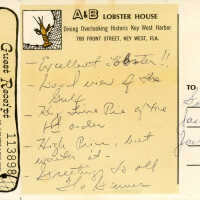 A&B LOBSTER HOUSE
Dining Overlooking Historic Key West Harbor
700 FRONT STREET, KEY WEST, FLA.
Guest Receipt
113898
TO:
- Excellent lobster!!
- Good view of the
Gulf
- Key Lime Pie of the
1st order
- High Price, but
worth it -
- Greetings to all